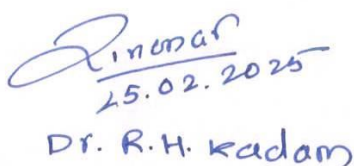 25.02.2025
Dr. R.H. Kadam